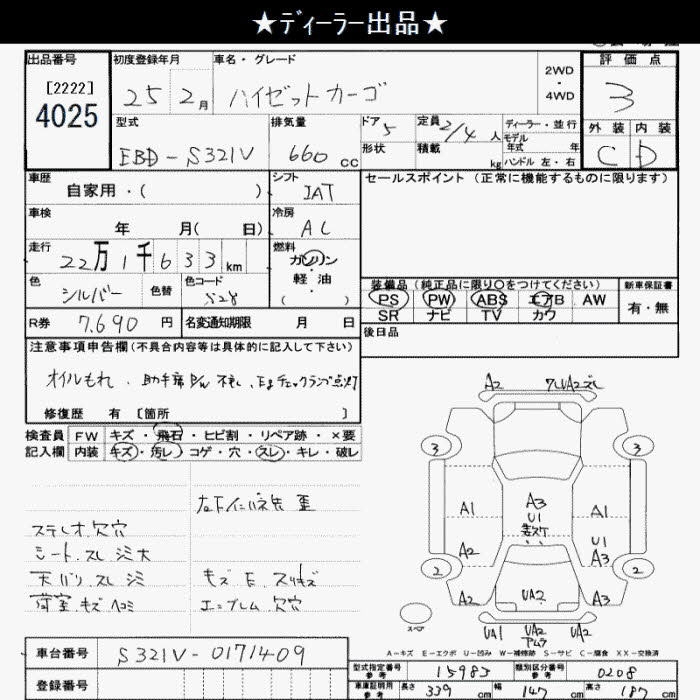 ★ディーラー出品★
出品番号
[2222]
4025
初度登録年月
25 2月
車名・グレード
ハイゼットカーゴ
2WD
・
4WD
評価点
3
外装 内装
C D
型式
EBD-S321V
排気量
660 cc
ドア 5
形状
定員 2/4 人
積載 kg
ディーラー・並行
モデル
年式 年
ハンドル 左・右
車歴
自家用・( )
シフト
IAT
車検
年 月( 日)
冷房
AC
走行
22万1千633km
燃料
ガソリン
・
軽油
( )
色
シルバー
色替
色コード
S28
R券 7.690 円
名変通知期限 月 日
セールスポイント（正常に機能するものに限ります）
装備品（純正品に限り○をつけてください）
新車保証書
PS PW ABS エアB AW
有・無
SR ナビ TV カワ
後日品
注意事項申告欄(不具合内容等は具体的に記入して下さい)
オイルもれ、助手席P/W不良、チェックランプ点灯
修復歴 有 [箇所 ]
検査員 FW キズ・飛石・ヒビ割・リペア跡・×要
記入欄 内装 キズ・汚レ・コゲ・穴・スレ・キレ・破レ
左下
歪
ステレオ.欠穴
シート.スレ シミ大
天バリ.スレ シミ
荷室.キズ ヘコミ
キズ E.スリキズ
エンブレム.欠穴
A2
3 3
A1 A3 A1
U1
U1
A2 A3
2 2
A2 UA2 A3
スペア
UA1 UA2
A2
A－キズ E－エクボ U－凹み W－補修跡 S－サビ C－腐食 XX－交換済
車台番号 S321V-0171409
登録番号
型式指定番号
参考
15983
類別区分番号
参考
0208
車庫証明用
参考
長さ 339 cm
幅 147 cm
高さ 187 cm